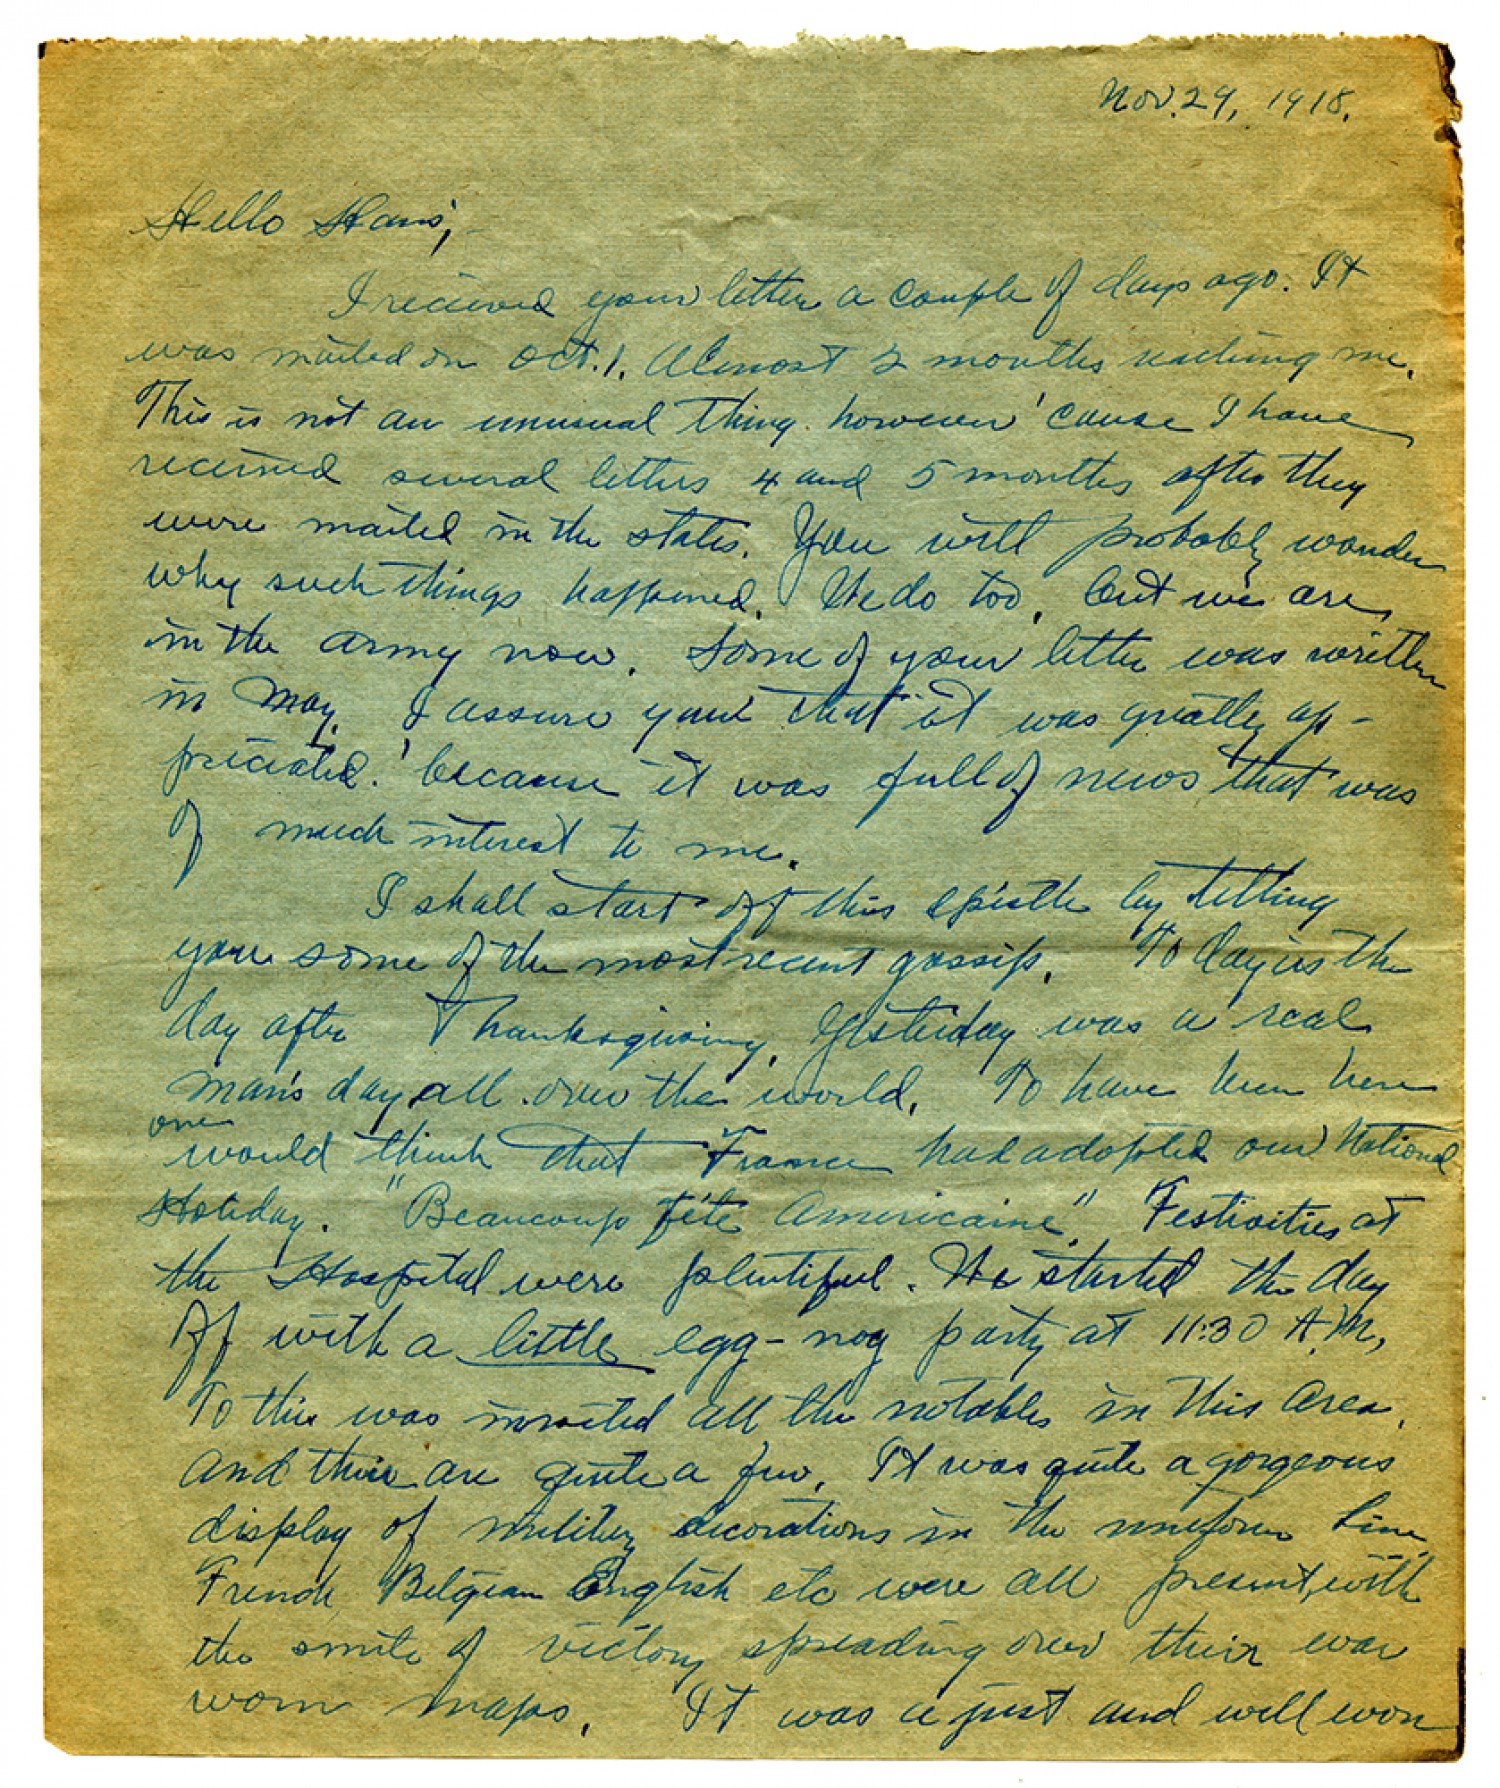 Nov. 29, 1918.
Hello Hans;
I recieved your letter a couple of days ago. It
was mailed on Oct. 1. Almost 2 months reaching me.
This is not an unusual thing however 'cause I have
received several letters 4 and 5 months after they
were mailed in the states. You will probably wonder
why such things happened. We do too, but we are
in the army now. Some of your letter was written
in May. I assure you that it was greatly ap-
preciated. because it was full of news that was
of much interest to me.
I shall start off this epistle by telling
you some of the most recent gossip. To day is the
day after Thanksgiving. Yesterday was a real
man's day all over the world. To have been here
one
would think that France had adopted our National
Holiday. "Beaucoup fête Americaine". Festivities at
the Hospital were plentiful. We started the day
off with a little egg-nog party at 11:30 A.M.
To this was invited all the notables in this area,
and there are quite a few. It was quite a gorgeous
display of military decorations in the uniform line
French, Belgian English etc were all present, with
the smile of victory spreading over their war
worn maps. It was a just and well won